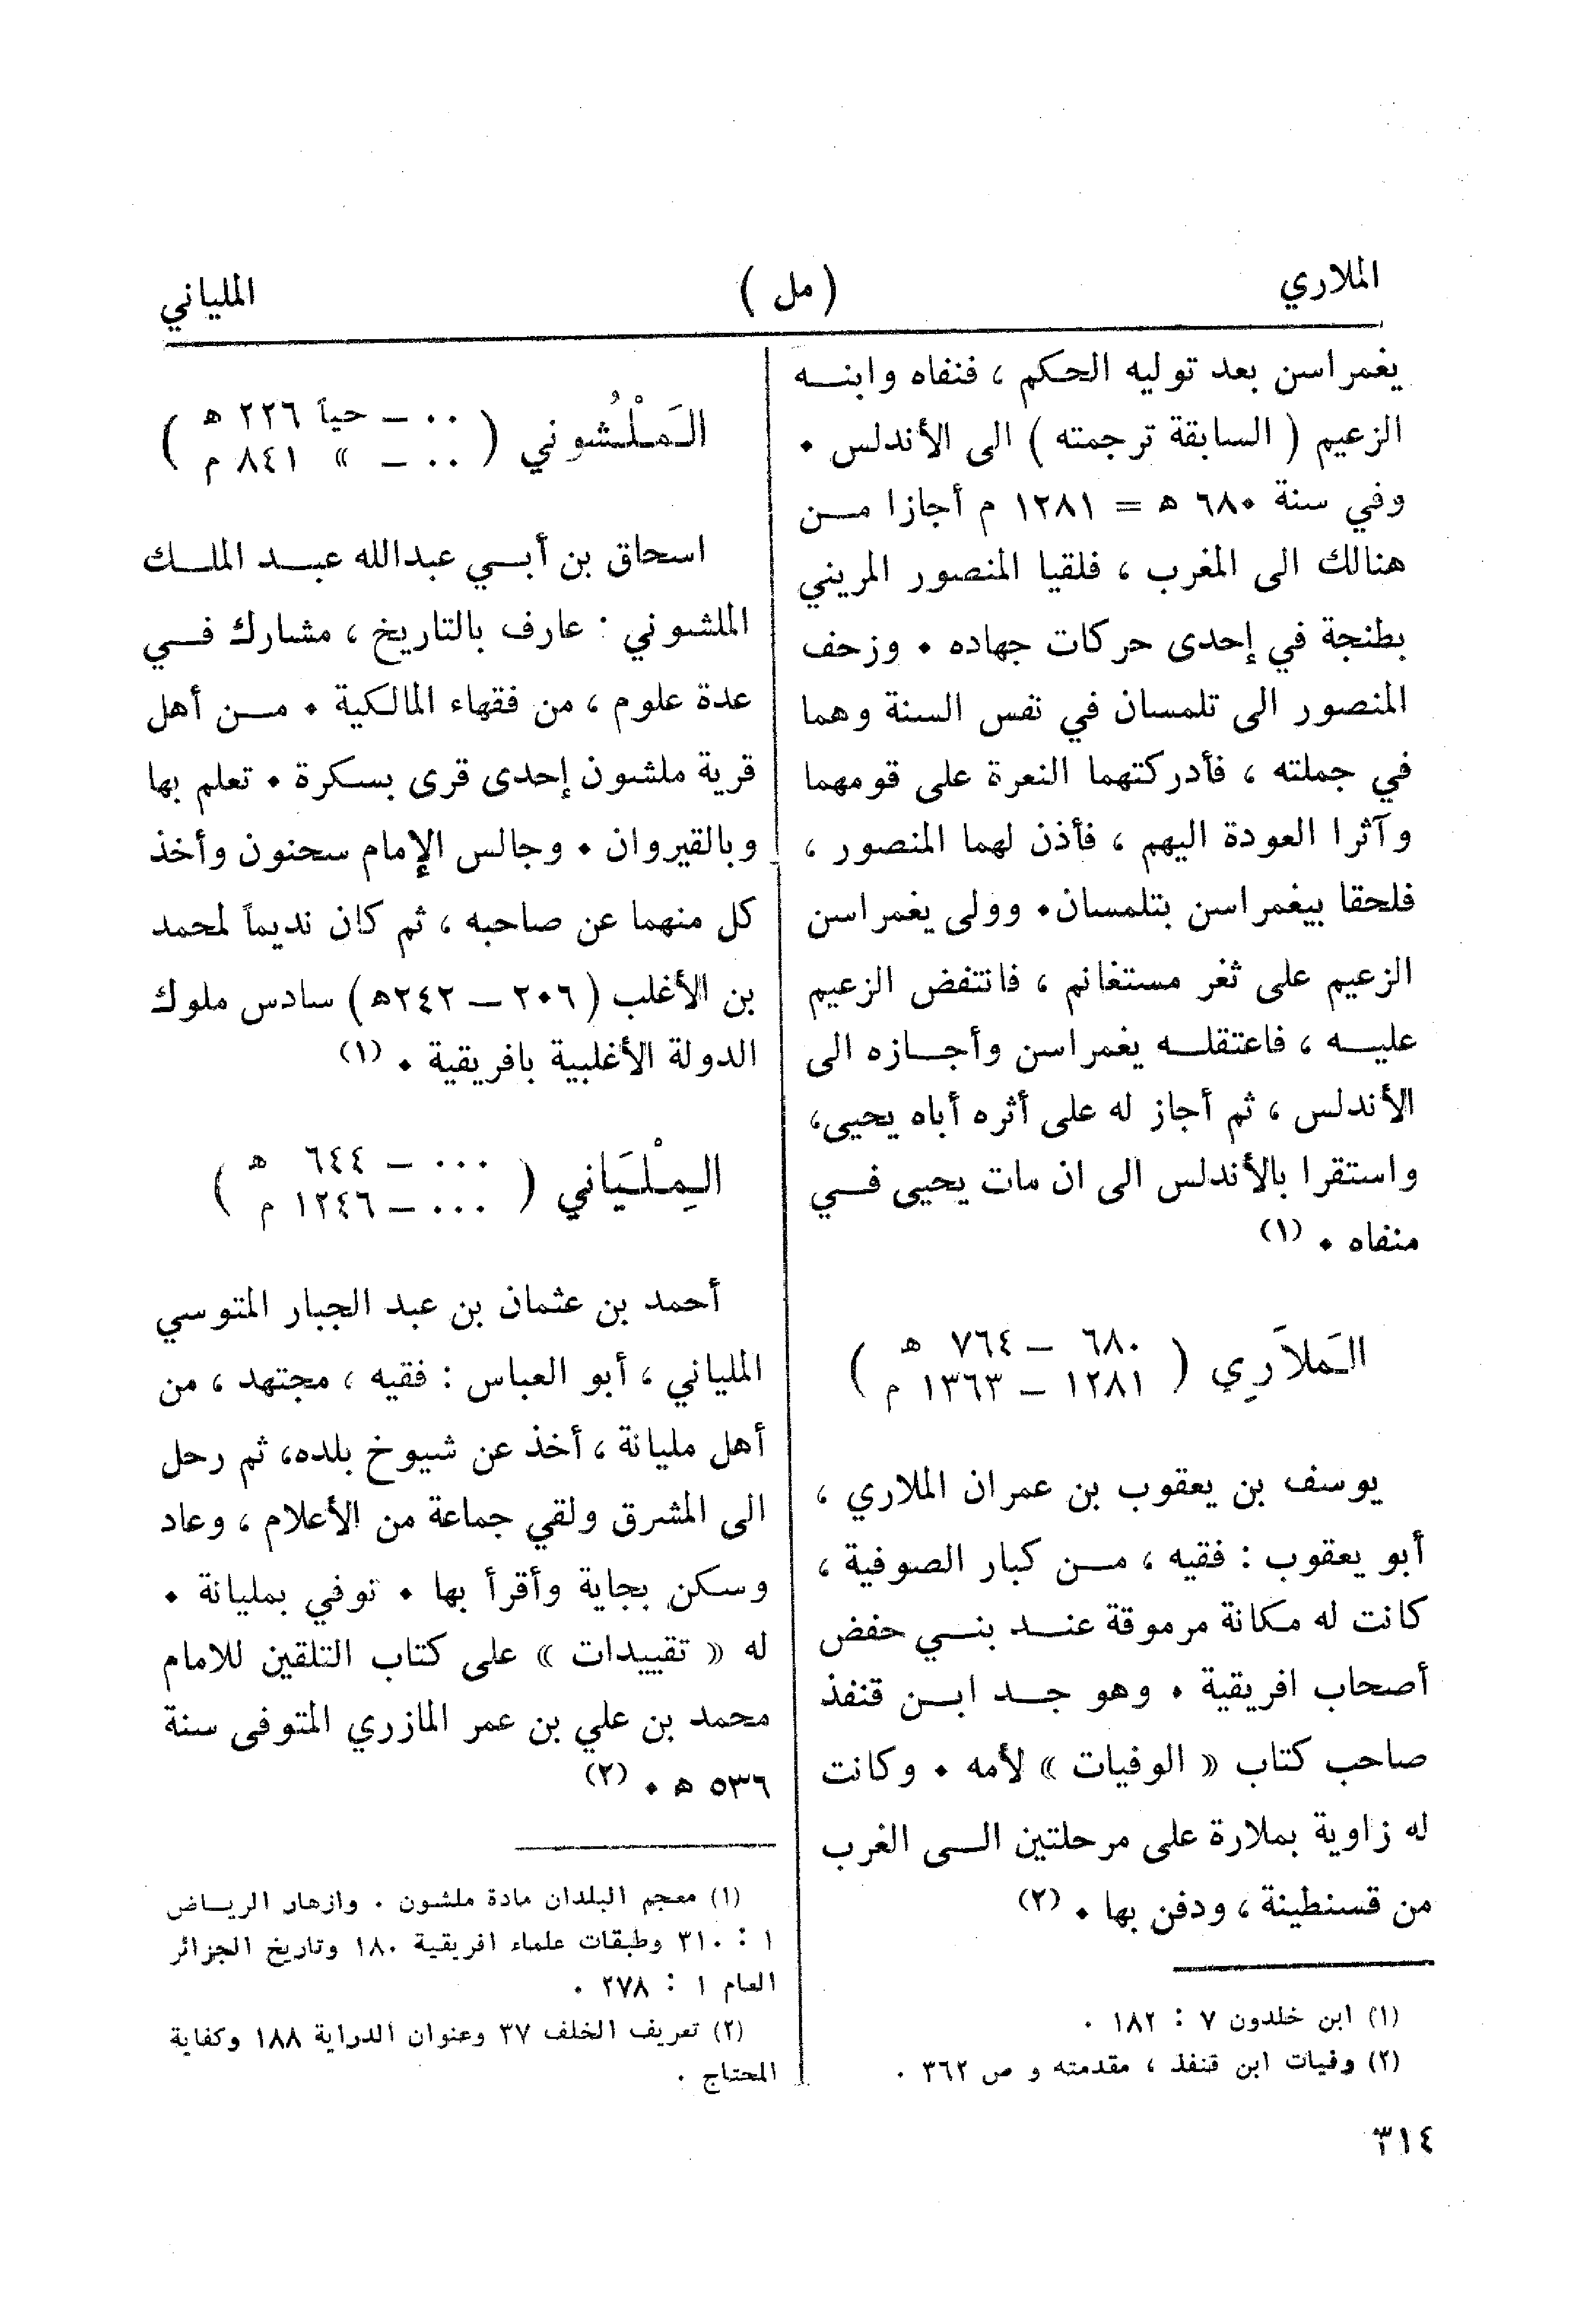 الملاري
( مل )
الملياني
يغمراسن بعد توليه الحكم ، فنفاه وابنـــه
الزعيم ( السابقة ترجمته ) الى الأندلس ٠
وفي سنة ٦٨٠ هـ = ١٢٨١ م أجازا مــن
هنالك الى المغرب ، فلقيا المنصور المريني
بطنجة في إحدى حركات جهاده ٠ وزحف
المنصور الى تلمسان في نفس السنة وهما
في جملته ، فأدركتهما النعرة على قومهما
وآثرا العودة اليهم ، فأذن لهما المنصور ،
فلحقا بيغمراسن بتلمسان٠ وولى يغمراسن
الزعيم على ثغر مستغانم ، فانتفض الزعيم
عليـــه ، فاعتقلـــه يغمراسن وأجــازه الى
الأندلس ، ثم أجاز له على أثره أباه يحيى،
واستقرا بالأندلس الى ان مات يحيى فــي
منفاه ٠ (١)
المَلاَرِي ( ٦٨٠ – ٧٦٤ هـ
١٢٨١ – ١٣٦٣ م )
يوسف بن يعقوب بن عمران الملاري ،
أبو يعقوب : فقيه ، مــن كبار الصوفية ،
كانت له مكانة مرموقة عنــد بنــي حفض
أصحاب افريقية ٠ وهو جــد ابــن قنفذ
صاحب كتاب « الوفيات » لأمه ٠ وكانت
له زاوية بملارة على مرحلتين الــى الغرب
من قسنطينة ، ودفن بها ٠ (٢)
(١) ابن خلدون ٧ : ١٨٢ ٠
(٢) وفيات ابن قنفذ ، مقدمته و ص ٣٦٢ ٠
المَلْشُوني ( ٠٠ – حياً ٢٢٦ هـ
٠٠ – » ٨٤١ م )
اسحاق بن أبــي عبدالله عبــد الملــك
الملشوني : عارف بالتاريخ ، مشارك فــي
عدة علوم ، من فقهاء المالكية ٠ مــن أهل
قرية ملشون إحدى قرى بسكرة ٠ تعلم بها
وبالقيروان ٠ وجالس الإمام سحنون وأخذ
كل منهما عن صاحبه ، ثم كان نديماً لمحمد
بن الأغلب ( ٢٠٦ – ٢٤٢هـ ) سادس ملوك
الدولة الأغلبية بافريقية ٠ (١)
المِلْيَاني ( ٠٠٠ – ٦٤٤ هـ
٠٠٠ – ١٢٤٦ م )
أحمد بن عثمان بن عبد الجبار المتوسي
الملياني ، أبو العباس : فقيه ، مجتهد ، من
أهل مليانة ، أخذ عن شيوخ بلده، ثم رحل
الى المشرق ولقي جماعة من الأعلام ، وعاد
وسكن بجاية وأقرأ بها ٠ توفي بمليانة ٠
له « تقييدات » على كتاب التلقين للامام
محمد بن علي بن عمر المازري المتوفى سنة
٥٣٦ هـ ٠ (٢)
(١) معجم البلدان مادة ملشون ٠ وازهار الريــاض
١ : ٣١٠ وطبقات علماء افريقية ١٨٠ وتاريخ الجزائر
العام ١ : ٢٧٨ ٠
(٢) تعريف الخلف ٣٧ وعنوان الدراية ١٨٨ وكفاية
المحتاج ٠
٣١٤